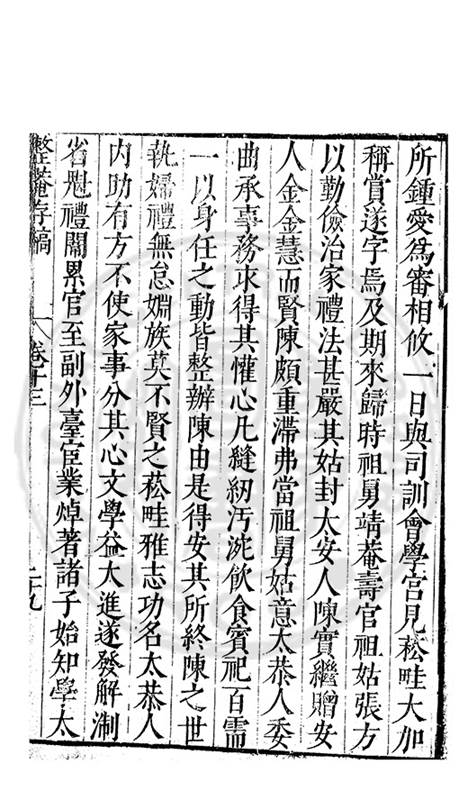 所鍾愛爲審相攸一日與司訓會學宮見菘畦大加
稱賞遂字焉及期來歸時祖舅靖菴壽官祖姑張方
以勤儉治家禮法甚嚴其姑封太安人陳實繼贈安
人金金慧而賢陳頗重滯弗當祖舅姑意太恭人委
曲承事務求得其懽心凡縫紉汚浣飲食賓祀百需
一以身任之動皆整辦陳由是得安其所終陳之世
執婦禮無怠婣族莫不賢之菘畦雅志功名太恭人
内助有方不使家事分其心文學益大進遂發解淛
省魁禮闈累官至副外臺宦業焯著諸子始知學太
整菴存稿
卷十三
二十九